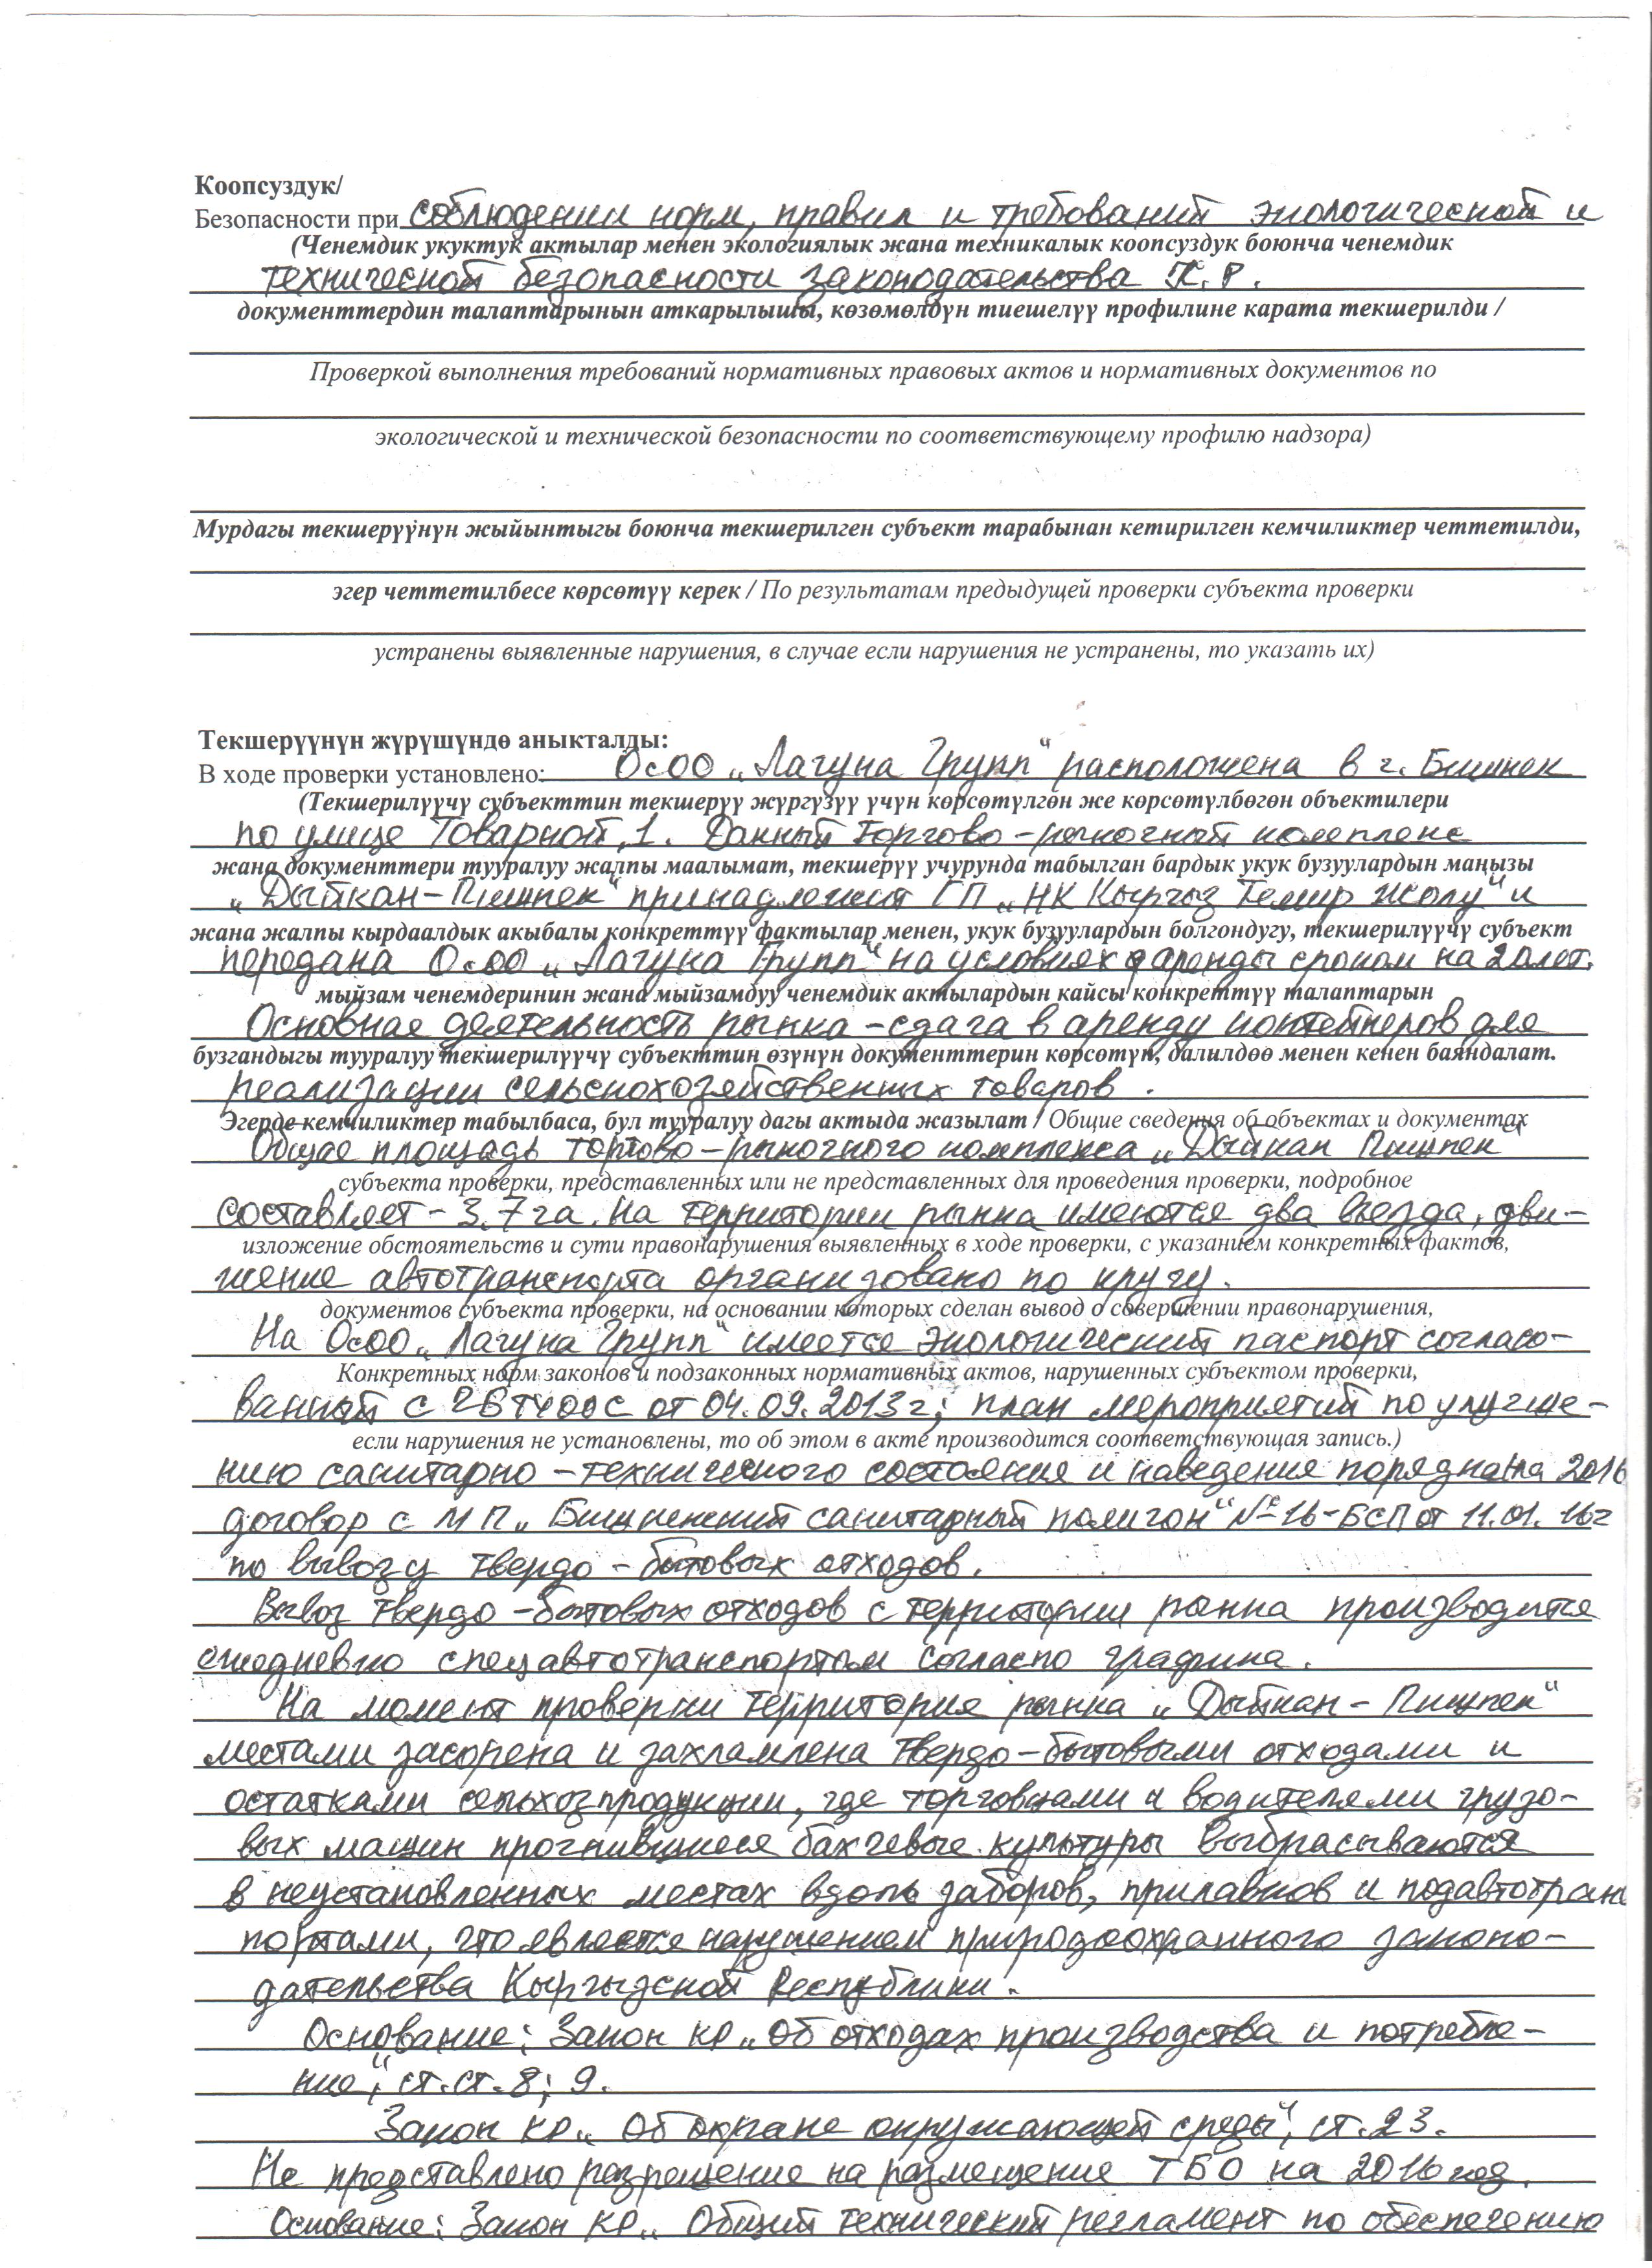 Коопсуздук/
Безопасности при соблюдении норм, правил и требований экологической и
(Ченемдик укуктук актылар менен экологиялык жана техникалык коопсуздук боюнча ченемдик
технической безопасности законодательства К.Р.
документтердин талаптарынын аткарылышы, көзөмөлдүн тиешелүү профилине карата текшерилди /
Проверкой выполнения требований нормативных правовых актов и нормативных документов по
экологической и технической безопасности по соответствующему профилю надзора)
Мурдагы текшерүүнүн жыйынтыгы боюнча текшерилген субъект тарабынан кетирилген кемчиликтер четтетилди,
эгер четтетилбесе көрсөтүү керек / По результатам предыдущей проверки субъекта проверки
устранены выявленные нарушения, в случае если нарушения не устранены, то указать их)
Текшерүүнүн жүрүшүндө аныкталды:
В ходе проверки установлено: ОсОО „Лагуна Групп“ расположена в г. Бишкек
(Текшерилүүчү субъекттин текшерүү жүргүзүү үчүн көрсөтүлгөн же көрсөтүлбөгөн объектилери
по улице Товарной, 1. Данный торгово-рыночный комплекс
жана документтери тууралуу жалпы маалымат, текшерүү учурунда табылган бардык укук бузуулардын маңызы
„Дыйкан-Пишпек“ принадлежит ГП „НК Кыргыз Темир Жолу“ и
жана жалпы кырдаалдык акыбалы конкреттүү фактылар менен, укук бузуулардын болгондугу, текшерилүүчү субъект
передана ОсОО „Лагуна Групп“ на условиях аренды сроком на 20 лет.
мыйзам ченемдеринин жана мыйзамдуу ченемдик актылардын кайсы конкреттүү талаптарын
Основная деятельность рынка - сдача в аренду контейнеров для
бузгандыгы тууралуу текшерилүүчү субъекттин өзүнүн документтерин көрсөтүп, далилдөө менен кенен баяндалат.
реализации сельскохозяйственных товаров.
Эгерде кемчиликтер табылбаса, бул тууралуу дагы актыда жазылат / Общие сведения об объектах и документах
Общая площадь торгово-рыночного комплекса „Дыйкан Пишпек“
субъекта проверки, представленных или не представленных для проведения проверки, подробное
составляет - 3.7 га. На территории рынка имеются два въезда, дви-
изложение обстоятельств и сути правонарушения выявленных в ходе проверки, с указанием конкретных фактов,
жение автотранспорта организовано по кругу.
документов субъекта проверки, на основании которых сделан вывод о совершении правонарушения,
На ОсОО „Лагуна Групп“ имеется экологический паспорт согласо-
Конкретных норм законов и подзаконных нормативных актов, нарушенных субъектом проверки,
ванный с ЧБТУООС от 04.09.2013г; план мероприятий по улучше-
если нарушения не установлены, то об этом в акте производится соответствующая запись.)
нию санитарно-технического состояния и наведения порядка на 2016
договор с МП „Бишкекский санитарный полигон“ № 16-БСП от 11.01.16г
по вывозу твердо-бытовых отходов.
Вывоз твердо-бытовых отходов с территории рынка производится
ежедневно спецавтотранспортом согласно графика.
На момент проверки территория рынка „Дыйкан-Пишпек“
местами засорена и захламлена твердо-бытовыми отходами и
остатками сельхозпродукции, где торговцами и водителями грузо-
вых машин прогнившиеся бахчевые культуры выбрасываются
в неустановленных местах вдоль заборов, прилавков и под автотранс
портами, что является нарушением природоохранного законо-
дательства Кыргызской Республики.
Основание: Закон КР „Об отходах производства и потребле-
ния“, ст.ст. 8; 9.
Закон КР „Об охране окружающей среды“, ст. 23.
Не представлено разрешение на размещение ТБО на 2016 год.
Основание: Закон КР „Общий технический регламент по обеспечению